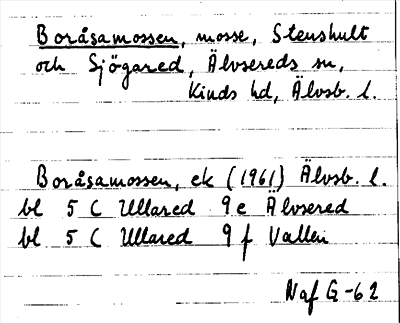 Boråsamossen, mosse, Stenshult
och Sjögared, Älvsereds sn,
Kinds hd, Älvsb. l.
Boråsamossen, ek (1961) Älvsb. l.
bl 5 C Ullared 9 e Älvsered
bl 5 C Ullared 9 f Vallen
Naf G-62